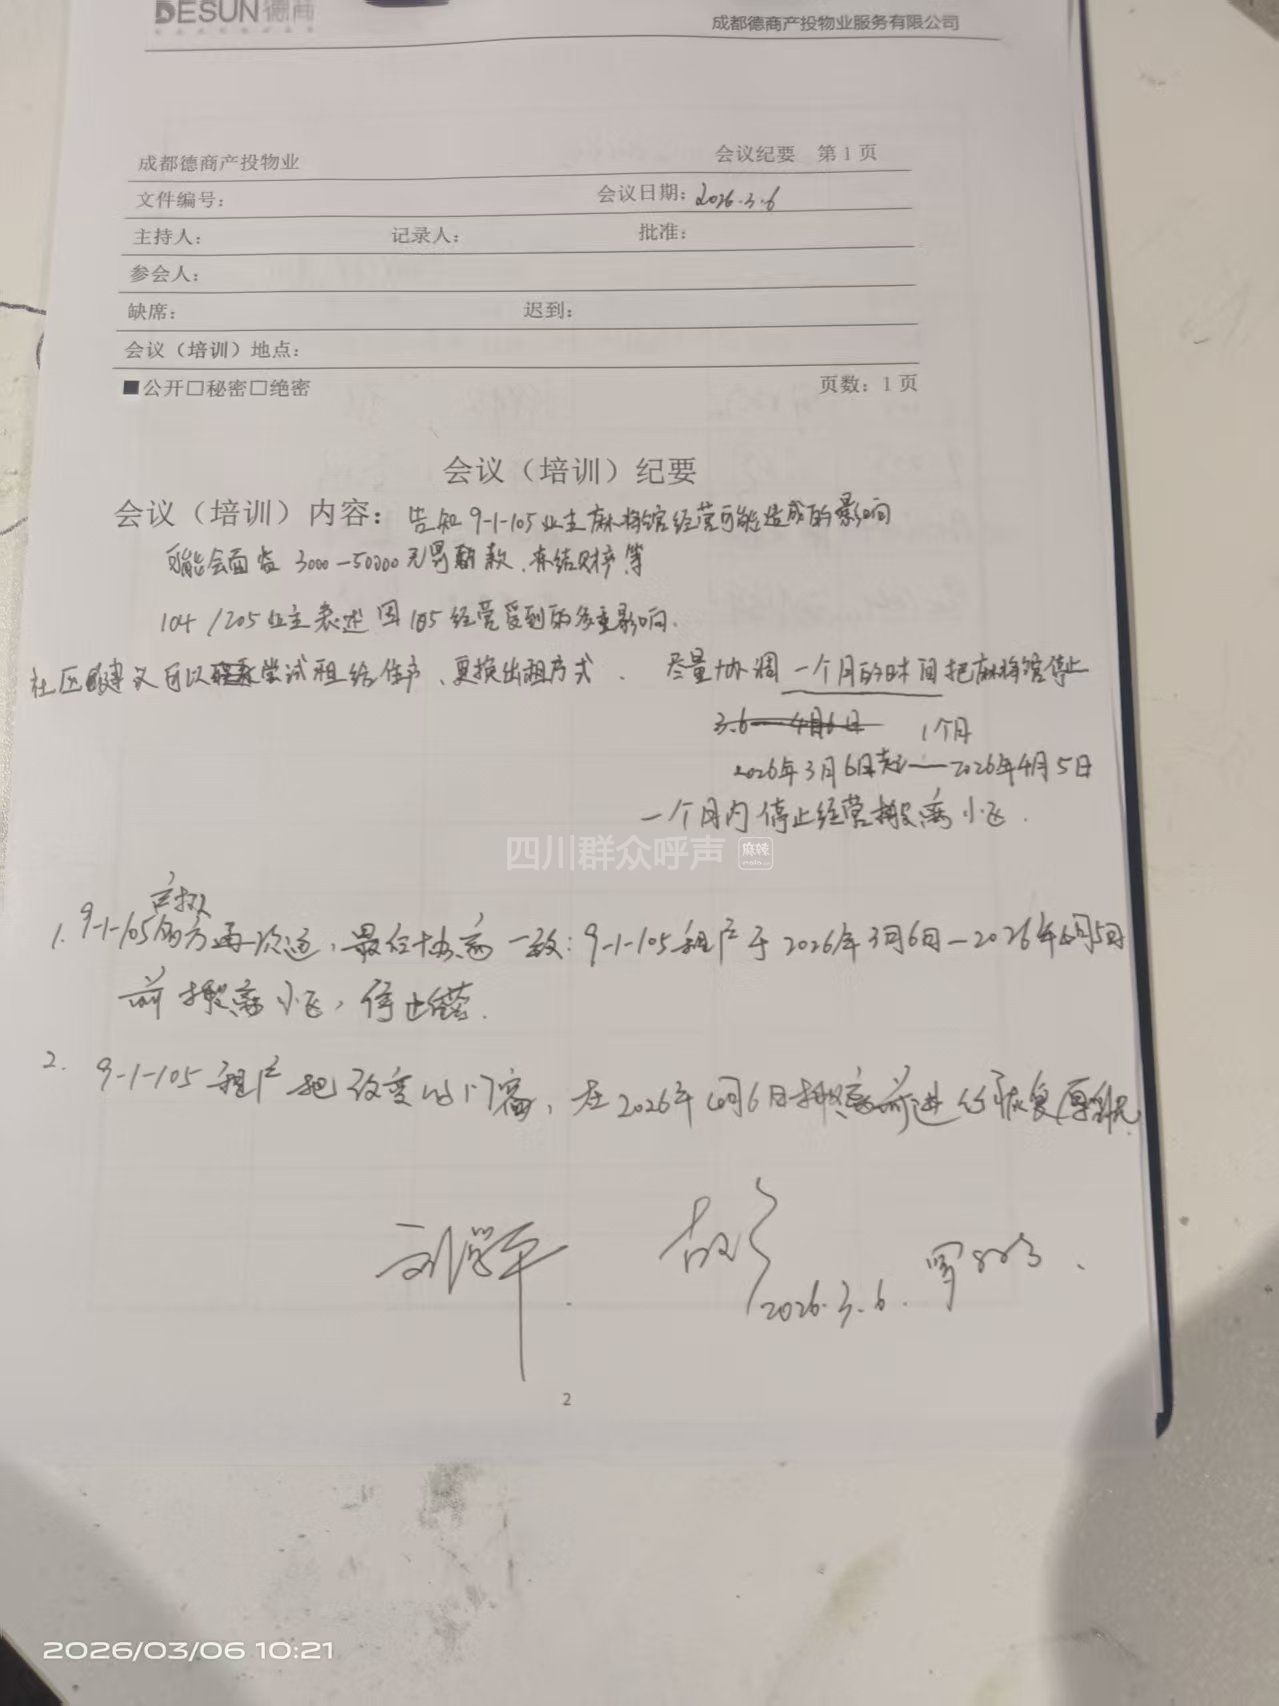 DESUN德商
成都德商产投物业服务有限公司
成都德商产投物业 会议纪要 第1页
文件编号： 会议日期：2026.3.6
主持人： 记录人： 批准：
参会人：
缺席： 迟到：
会议（培训）地点：
■公开□秘密□绝密 页数：1页
会议（培训）纪要
会议（培训）内容：告知9-1-105业主麻将馆经营可能造成的影响
可能会面临3000-50000元罚款、冻结财产等
104/205业主表述因105经营受到的多重影响.
社区建议可以尝试租给住户、更换出租方式. 尽量协调一个月的时间把麻将馆停止
3.6—4月6日 1个月
2026年3月6日起—2026年4月5日
一个月内停止经营搬离小区.
四川群众呼声 麻辣
1. 9-1-105 再次 ，最 一致：9-1-105租户于2026年3月6日-2026年4月5日
前搬离小区，停止经营.
2. 9-1-105租户把改变的门窗，在2026年4月6日搬离前进行恢复原状.
刘学平
2026.3.6. 罗
2
2026/03/06 10:21